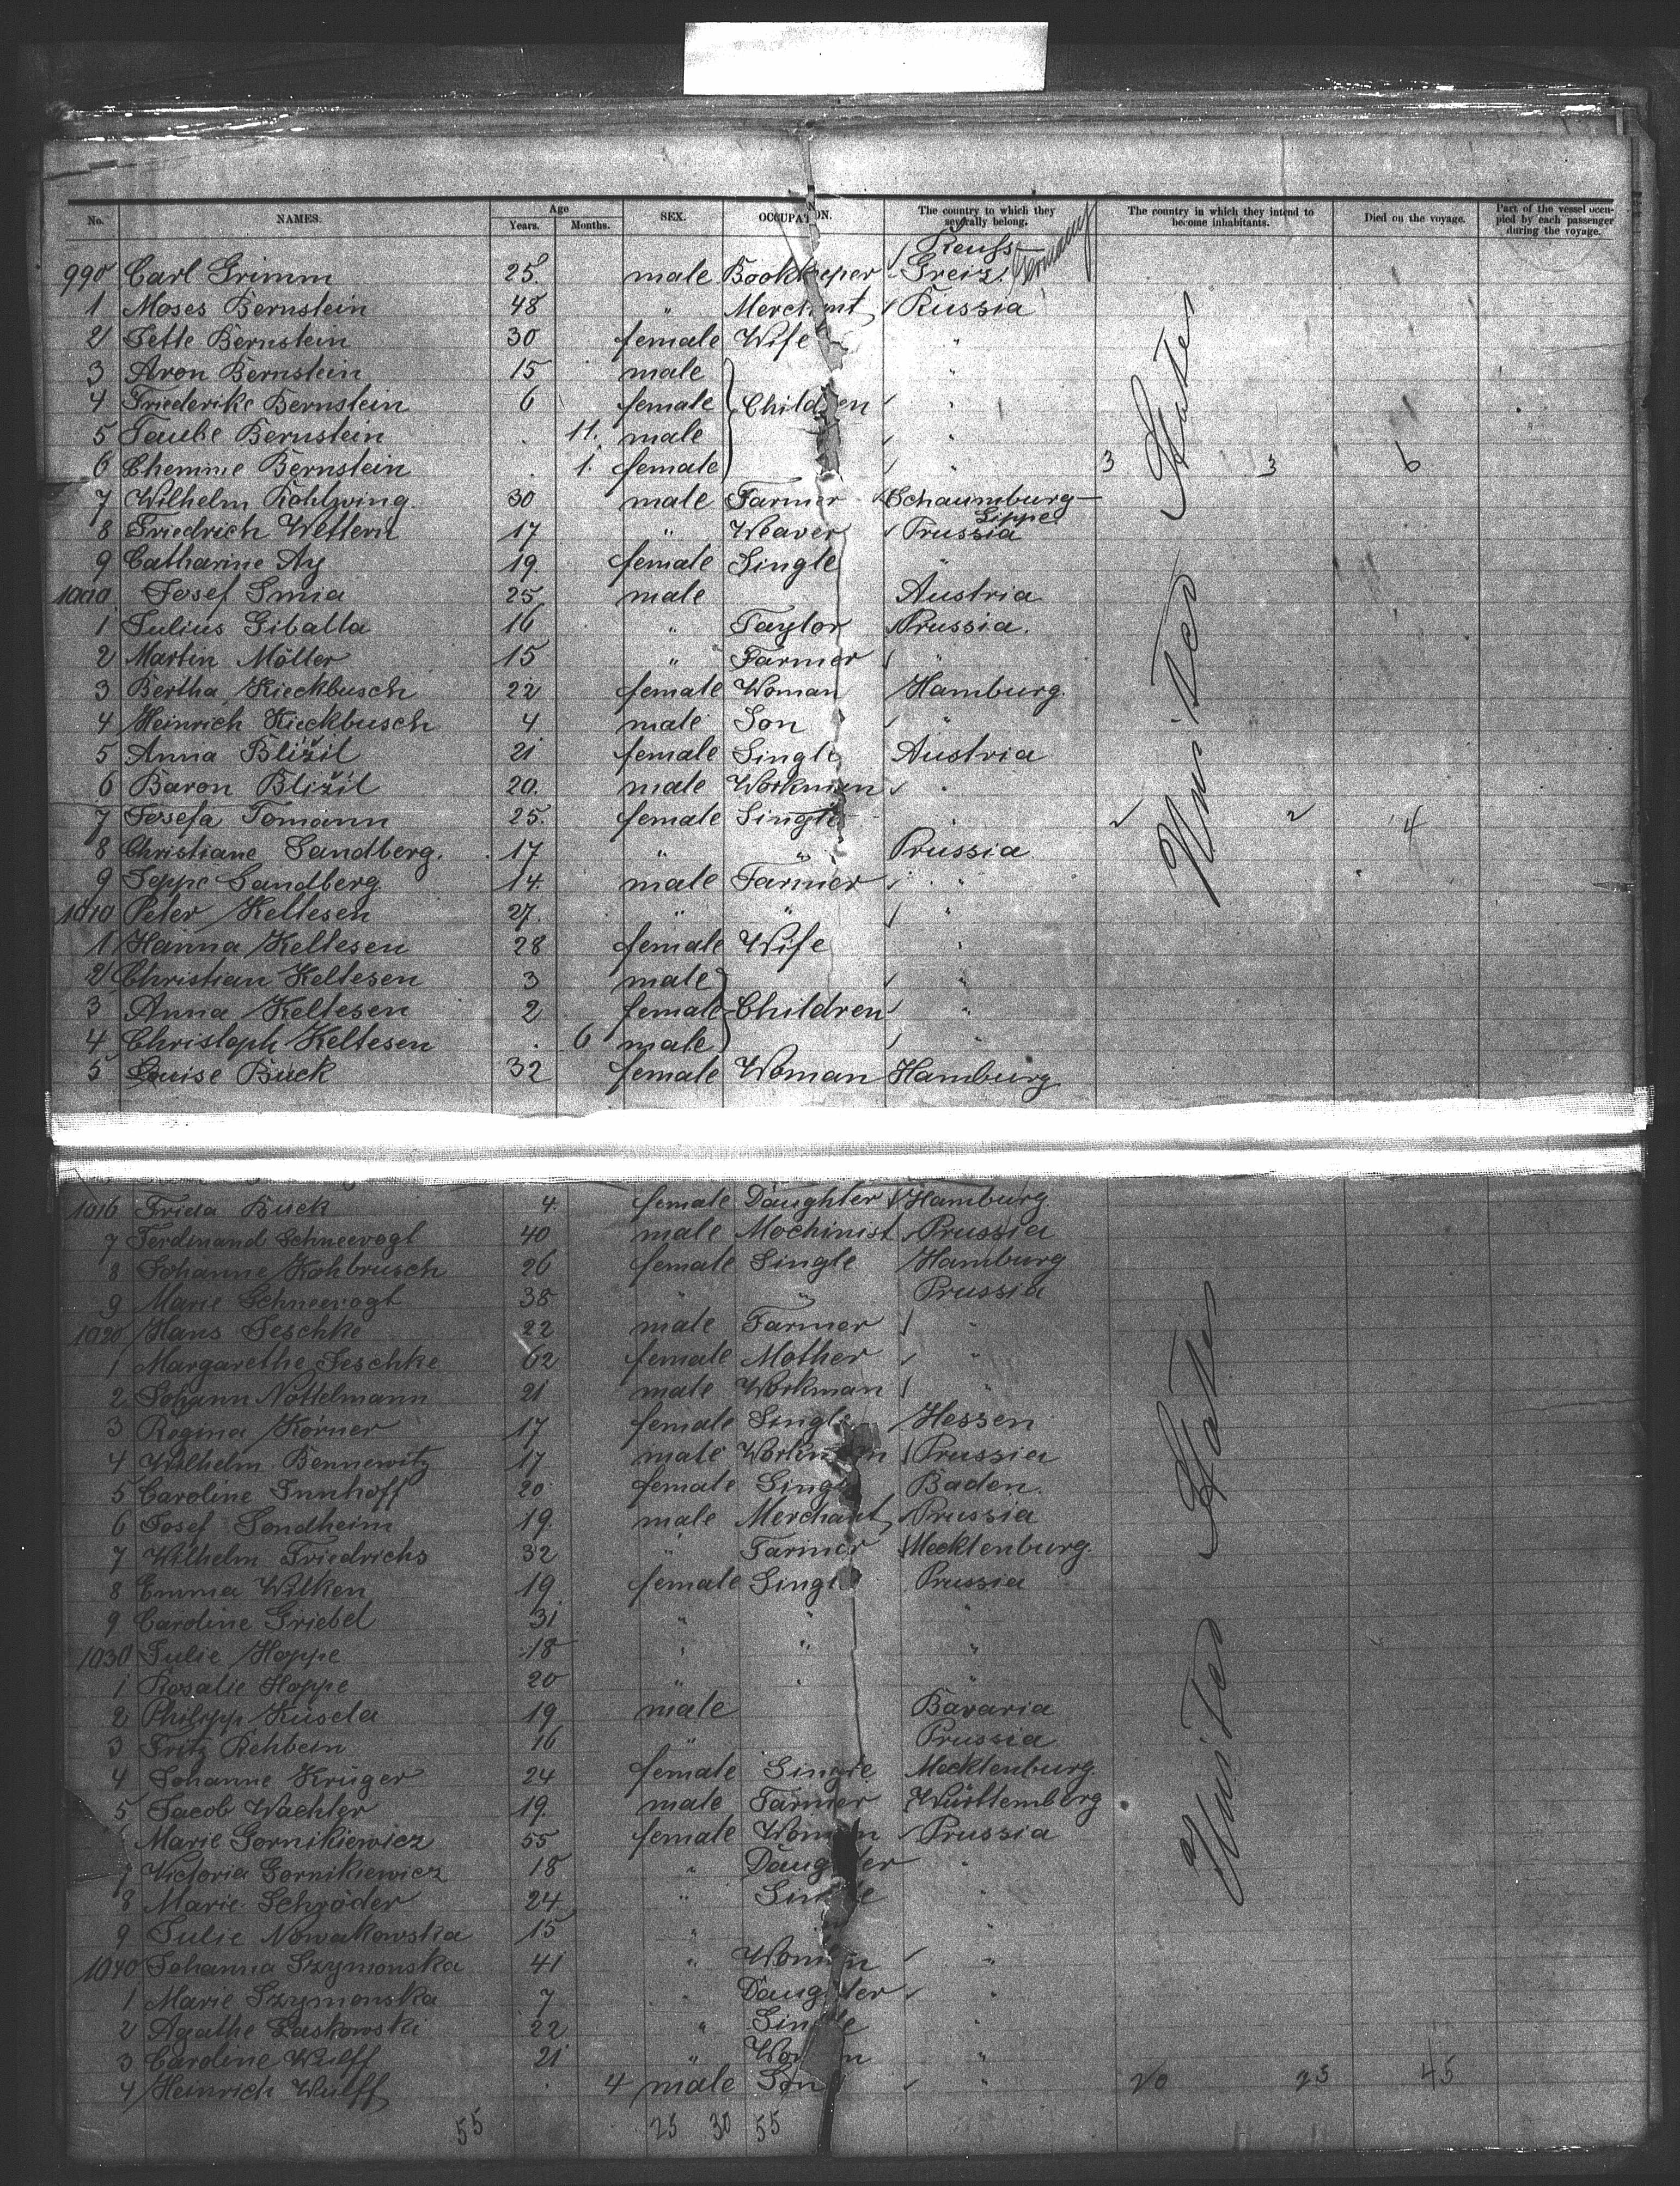 No. NAMES. Age Years. Months. SEX. OCCUPATION. The country to which they severally belong. The country in which they intend to become inhabitants. Died on the voyage. Part of the vessel occupied by each passenger during the voyage.
Reuss-
990 Carl Grimm 25 male Bookkeeper Greiz. Germany
1 Moses Bernstein 48 " Merchant Russia
2 Jette Bernstein 30 female Wife "
3 Aron Bernstein 15 male "
4 Friederike Bernstein 6 female Children "
5 Taube Bernstein 11. male "
6 Chemme Bernstein 1. female " 3 3 6
7 Wilhelm Kohlwing. 30 male Farmer Schaumburg-
Lippe
8 Friedrich Wettern 17 " Weaver Prussia
9 Catharine Ay 19 female Single "
1000 Josef Smia 25 male Austria
1 Julius Giballa 16 " Taylor Prussia.
2 Martin Möller 15 " Farmer "
3 Bertha Kieckbusch 22 female Woman Hamburg.
4 Heinrich Kieckbusch 4 male Son "
5 Anna Bližil 21 female Single Austria
6 Baron Bližil 20. male Workman "
7 Josefa Tomann 25. female Single " 2 2 4
8 Christiane Sandberg. 17 " " Prussia
9 Seppe Sandberg 14. male Farmer "
1010 Peter Keltesen 27. " " "
1 Hanna Keltesen 28 female Wife "
2 Christian Keltesen 3 male "
3 Anna Keltesen 2 female Children "
4 Christoph Keltesen 6 male "
5 Louise Buck 32 female Woman Hamburg
United States
1016 Frida Buck 4. female Daughter Hamburg.
7 Ferdinand Schneevogt 40 male Mochinist Prussia
8 Johanne Kohbrusch 26 female Single Hamburg
9 Marie Schneevogt 38 " " Prussia
1020 Hans Jeschke 22 male Farmer "
1 Margarethe Jeschke 62 female Mother "
2 Johann Nottelmann 21 male Workman "
3 Regina Körner 17 female Single Hessen
4 Wilhelm Bennewitz 17 male Workman Prussia
5 Caroline Innhoff 20 female Single Baden.
6 Josef Sondheim 19. male Merchant Prussia
7 Wilhelm Friedrichs 32 " Farmer Mecklenburg.
8 Emma Wilken 19 female Single Prussia
9 Caroline Griebel 31 " " "
1030 Julie Hoppe 18 " " "
1 Rosalie Hoppe 20 " " "
2 Philipp Kuscla 19 male Bavaria
3 Fritz Rehbein 16 " Prussia
4 Johanne Krüger 24 female Single Mecklenburg.
5 Jacob Wachter 19. male Farmer Württemberg
Marie Gornikiewicz 55 female Woman Prussia
7 Victoria Gornikiewicz 18 " Daughter "
8 Marie Schröder 24 " Single "
9 Julie Nowakowska 15 " "
1040 Johanna Szymonska 41 " Woman "
1 Marie Szymonska 7 " Daughter "
2 Agathe Laskowski 22 " Single "
3 Caroline Wulff 21 " Woman "
4 Heinrich Wulff 4 male Son " 20 25 45
United States
55 25 30 55